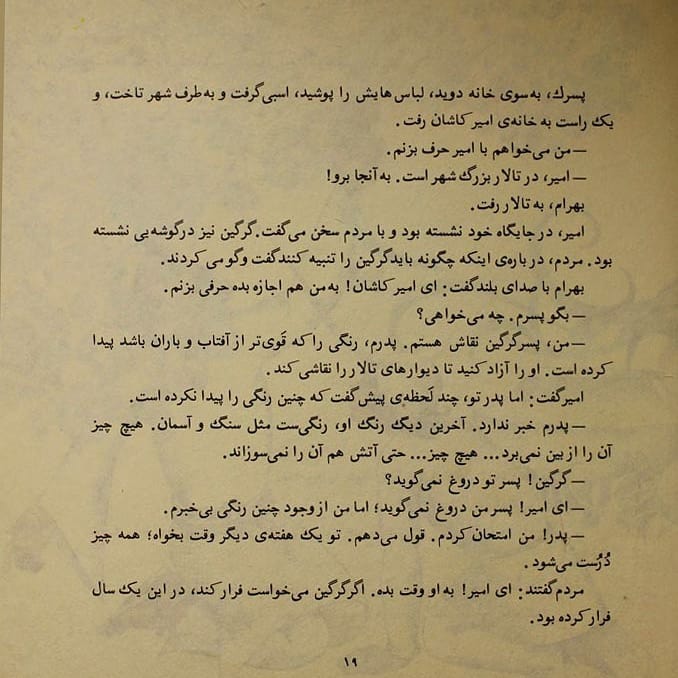 پسرك، به‌سوی خانه دوید، لباس‌هایش را پوشید، اسبی‌گرفت و به‌طرف شهر تاخت، و
یك راست به خانه‌ی امیر کاشان رفت.
— من می‌خواهم با امیر حرف بزنم.
— امیر، در تالار بزرگ شهر است. به آنجا برو!
بهرام، به تالار رفت.
امیر، در جایگاه خود نشسته بود و با مردم سخن می‌گفت. گرگین نیز در گوشه‌یی نشسته
بود. مردم، درباره‌ی اینکه چگونه باید گرگین را تنبیه کنند گفت وگو می‌کردند.
بهرام با صدای بلند گفت: ای امیر کاشان! به‌من هم اجازه بده حرفی بزنم.
— بگو پسرم. چه می‌خواهی؟
— من، پسر گرگین نقاش هستم. پدرم، رنگی را که قَوی‌تر از آفتاب و باران باشد پیدا
کرده است. او را آزاد کنید تا دیوارهای تالار را نقاشی کند.
امیر گفت: اما پدر تو، چند لَحظه‌ی پیش گفت که چنین رنگی را پیدا نکرده است.
— پدرم خبر ندارد. آخرین دیگ رنگ او، رنگی‌ست مثل سنگ و آسمان. هیچ چیز
آن را از بین نمی‌برد... هیچ چیز... حتی آتش هم آن را نمی‌سوزاند.
— گرگین! پسر تو دروغ نمی‌گوید؟
— ای امیر! پسر من دروغ نمی‌گوید؛ اما من از وجود چنین رنگی بی‌خبرم.
— پدر! من امتحان کردم. قول می‌دهم. تو یك هفته‌ی دیگر وقت بخواه؛ همه چیز
دُرُست می‌شود.
مردم گفتند: ای امیر! به او وقت بده. اگر گرگین می‌خواست فرار کند، در این یك سال
فرار کرده بود.
۱۹